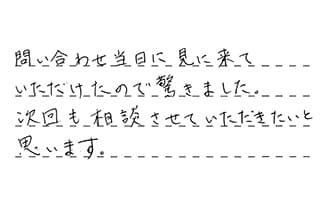 問い合わせ当日に見に来て
いただけたので驚きました。
次回も相談させていただきたいと
思います。